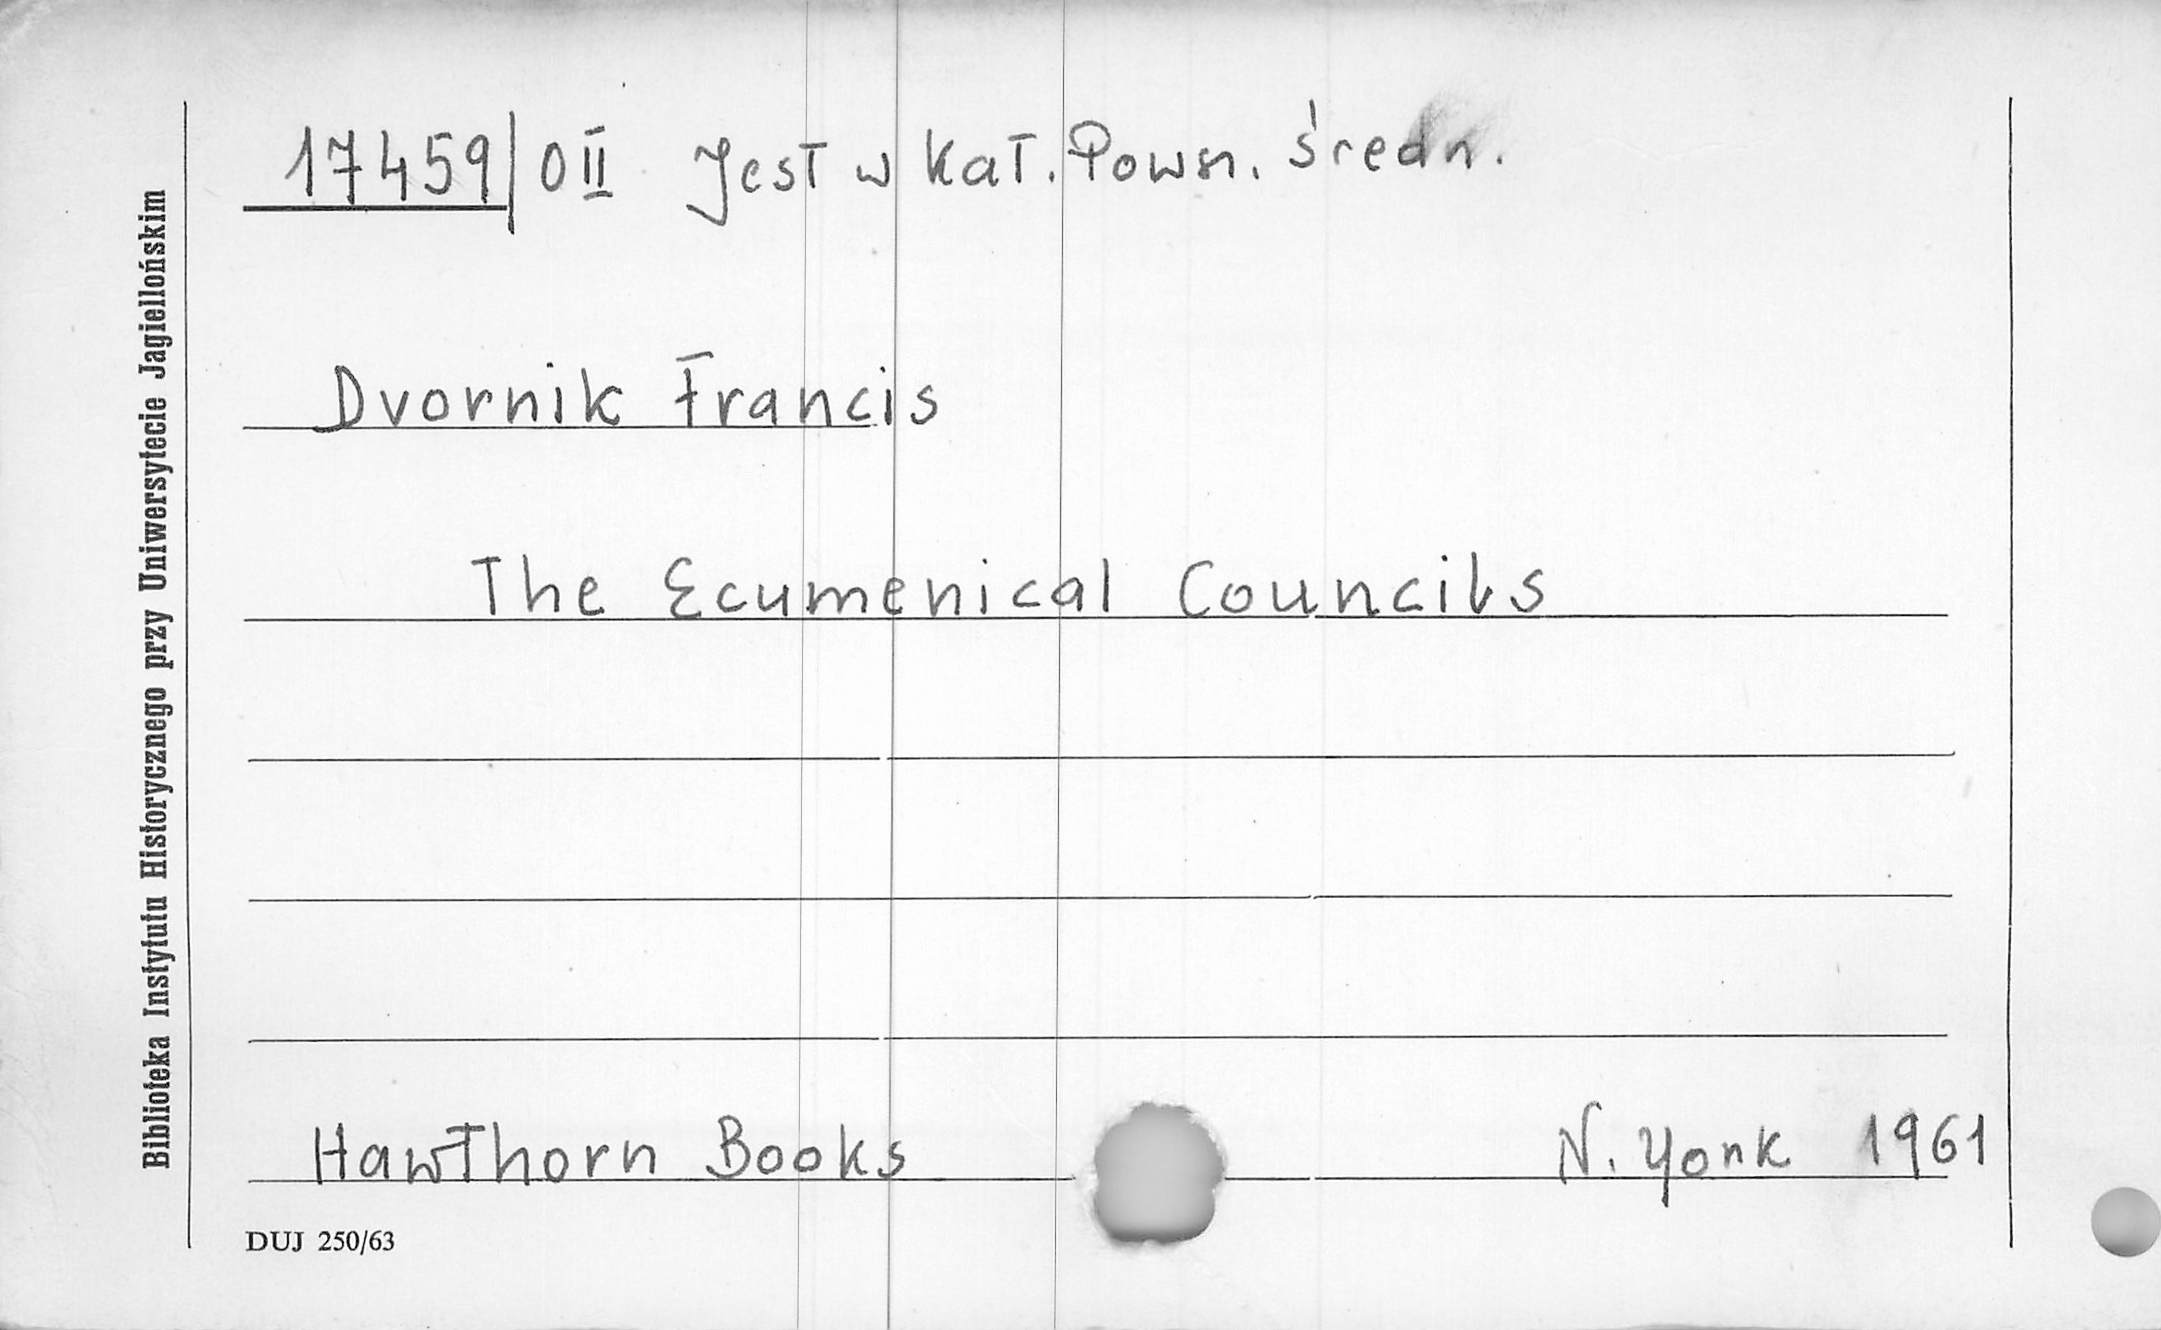 17459/0 II Jest w Kat. Powsz. średn.
Dvornik Francis
The Ecumenical Councils
Hawthorn Books N. York 1961
DUJ 250/63
Biblioteka Instytutu Historycznego przy Uniwersytecie Jagiellońskim